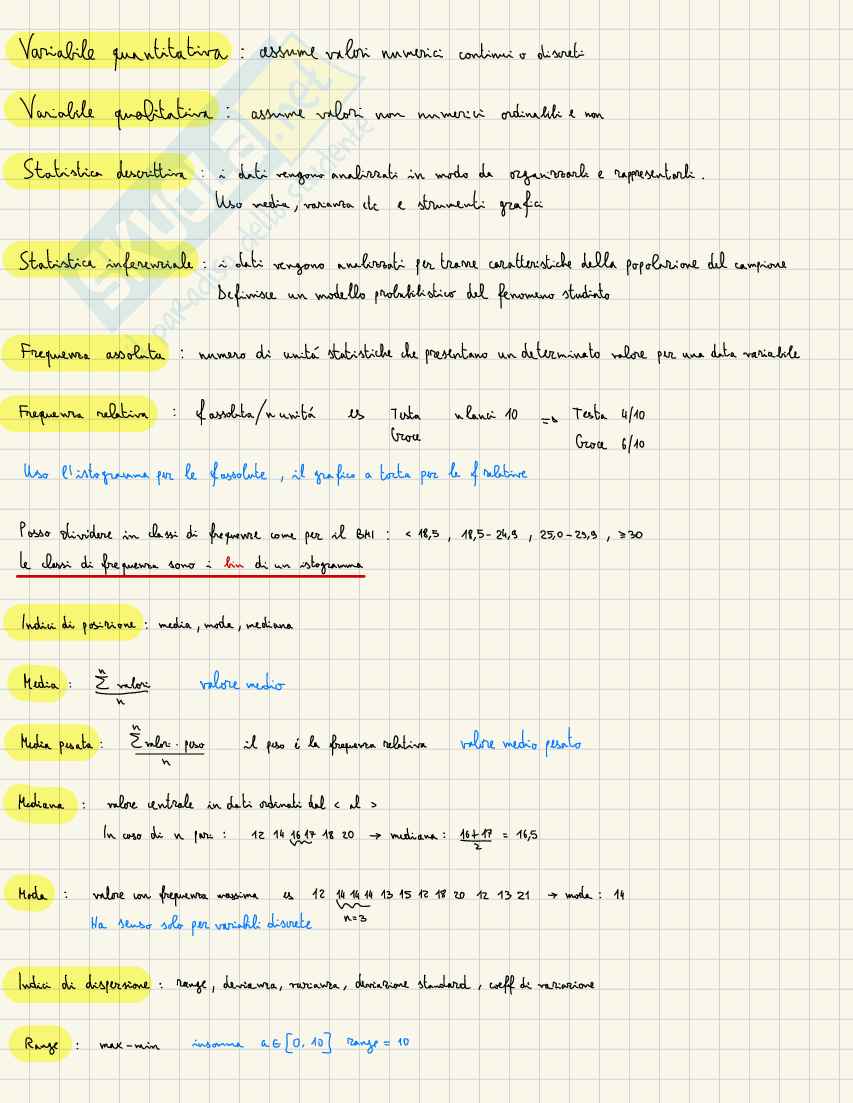 Variabile quantitativa : assume valori numerici continui o discreti
Variabile qualitativa : assume valori non numerici ordinabili e non
Statistica descrittiva : i dati vengono analizzati in modo da organizzarli e rappresentarli.
Uso media, varianza etc e strumenti grafici
Statistica inferenziale : i dati vengono analizzati per trarre caratteristiche della popolazione del campione
Definisce un modello probabilistico del fenomeno studiato
Frequenza assoluta : numero di unitá statistiche che presentano un determinato valore per una data variabile
Frequenza relativa : f assoluta/n unitá es Testa n lanci 10 => Testa 4/10
Croce Croce 6/10
Uso l'istogramma per le f assolute, il grafico a torta per le f relative
Posso dividere in classi di frequenze come per il BMI : < 18,5 , 18,5-24,9 , 25,0-29,9 , ≥30
Le classi di frequenza sono i bin di un istogramma
Indici di posizione : media, moda, mediana
Media : n∑ valori / n valore medio
Media pesata : n∑ valori · peso / n il peso é la frequenza relativa valore medio pesato
Mediana : valore centrale in dati ordinati dal < al >
In caso di n pari : 12 14 16 17 18 20 → mediana : 16+17 / 2 = 16,5
Moda : valore con frequenza massima es 12 14 14 14 13 15 12 18 20 12 13 21 → moda : 14
n=3
Ha senso solo per variabili discrete
Indici di dispersione : range, devianza, varianza, deviazione standard, coeff di variazione
Range : max-min insomma a ∈ [0, 10] range = 10
SKUOLA.net
il paradiso dello studente